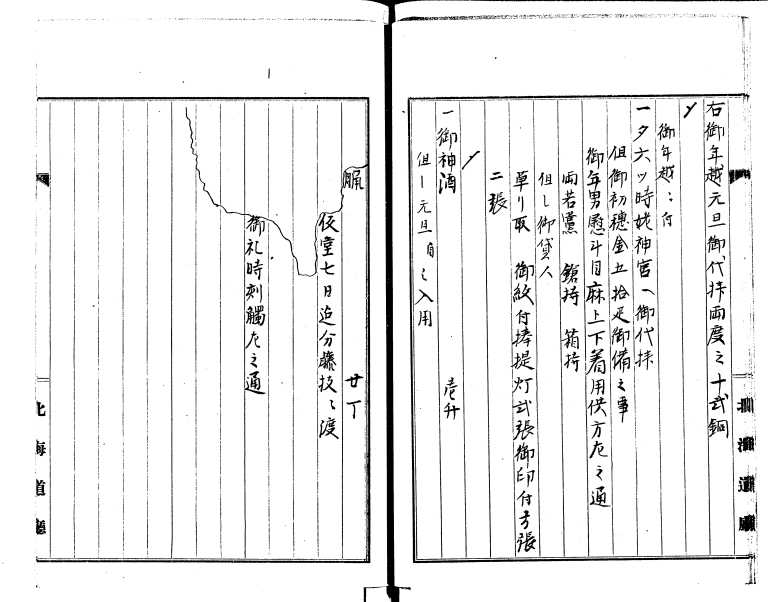 右御年越元旦御代拝両度之十弐銅
御年越ニ付
一夕六ツ時姥神宮へ御代拝
但御初穂金五拾疋御備之事
御年男慰斗目麻上下着用供方左之通
両若黨 鎗持 箱持
但し御貸人
草り取 御紋付捧提灯弐張御印付弓張
二張
一御神酒 壱升
但し元旦自之入用
廿丁
依堂七日迠分藤技ゟ渡
御礼時刻觸左之通
北海道廳
北海道廳